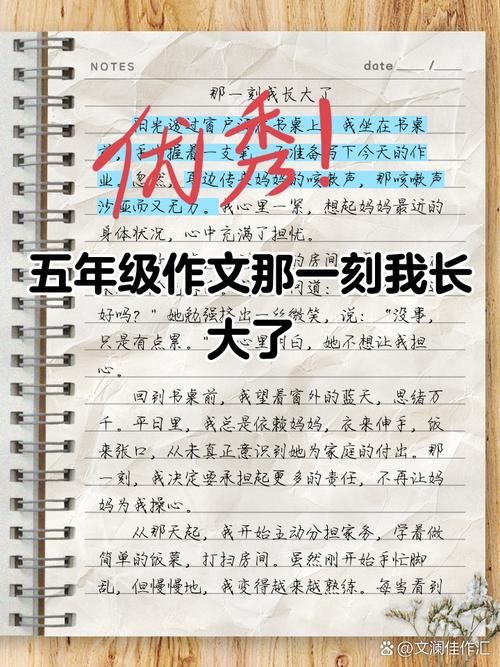 NOTES
date ___ / ___
那一刻我长大了
阳光透过窗户洒在书桌上，我坐在书桌
前，手中握着一支笔，准备写下今天的作
业。忽然，耳边传来妈妈的咳嗽声，那咳嗽声
沙哑而又无力。我心里一紧，想起妈妈最近的
身体状况，心中充满了担忧。
优秀！
的房间
五年级作文那一刻我长
大了
问道：
好吗？”她勉强挤出一丝微笑，说：“没事，
只是有点累。”心里明白，她不想让我担
心。
回到书桌前，我望着窗外的蓝天，思绪万
千。平日里，我总是依赖妈妈，衣来伸手，饭
来张口，从未真正意识到她为家庭的付出。那
一刻，我决定要承担起更多的责任，不再让妈
妈为我操心。
从那天起，我开始主动分担家务，学着做
简单的饭菜，打扫房间。虽然刚开始手忙脚
乱，但慢慢地，我变得越来越熟练。每当看到
@文澜佳作汇